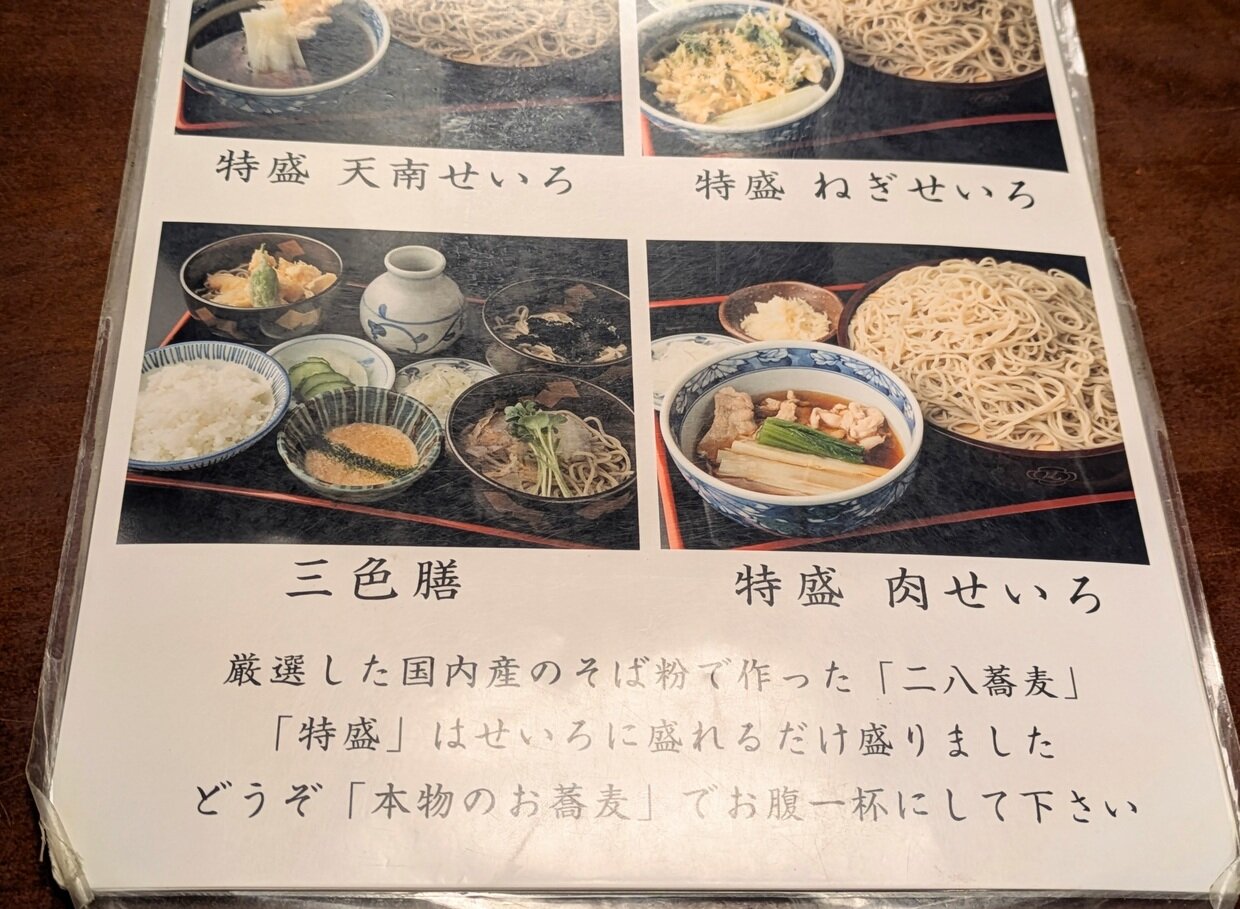 特盛 天南せいろ
特盛 ねぎせいろ
三色膳
特盛 肉せいろ
厳選した国内産のそば粉で作った「二八蕎麦」
「特盛」はせいろに盛れるだけ盛りました
どうぞ「本物のお蕎麦」でお腹一杯にして下さい